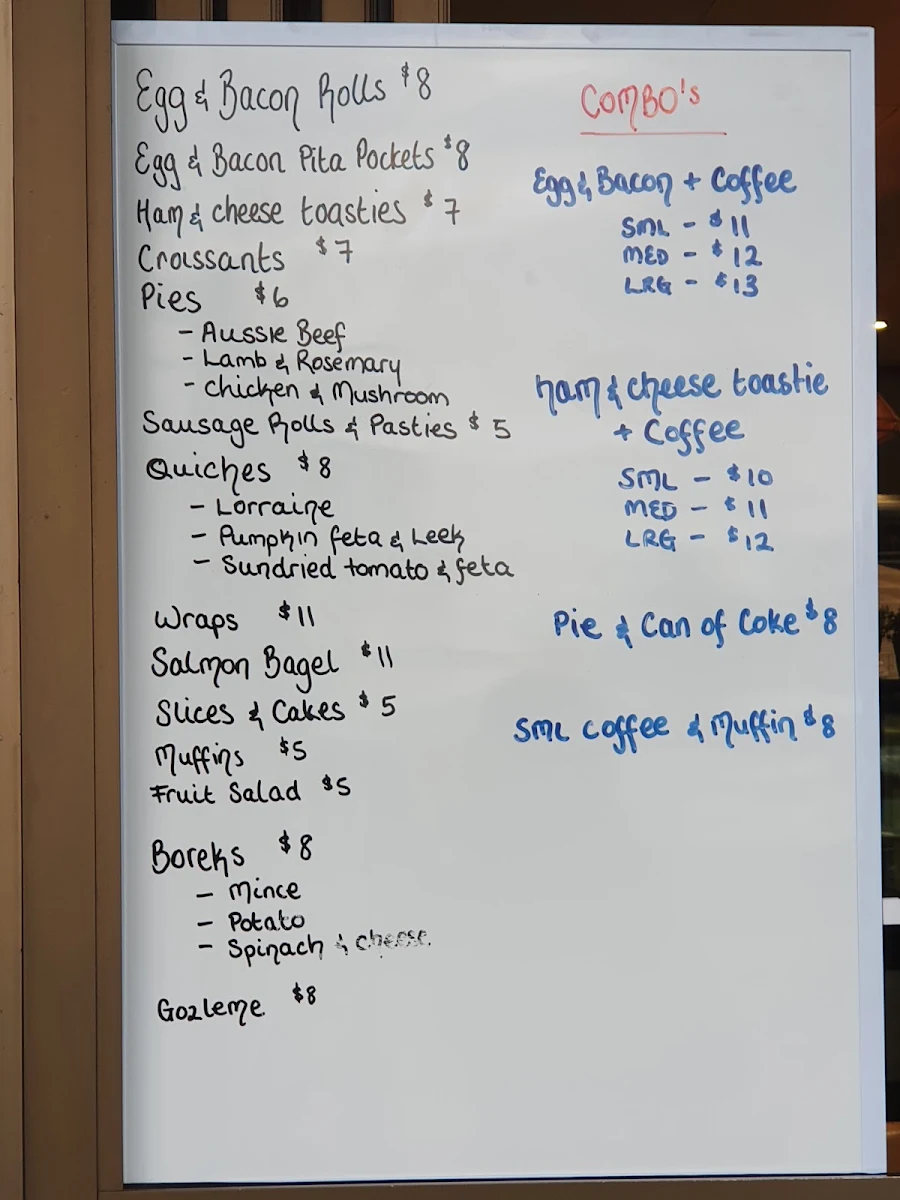 Egg & Bacon Rolls $8
Egg & Bacon Pita Pockets $8
Ham & cheese toasties $7
Croissants $7
Pies $6
- Aussie Beef
- Lamb & Rosemary
- Chicken & Mushroom
Sausage Rolls & Pasties $5
Quiches $8
- Lorraine
- Pumpkin feta & Leek
- Sundried tomato & feta
Wraps $11
Salmon Bagel $11
Slices & Cakes $5
Muffins $5
Fruit Salad $5
Boreks $8
- Mince
- Potato
- Spinach & cheese.
Gozleme $8
COMBO's
Egg & Bacon + Coffee
SML - $11
MED - $12
LRG - $13
Ham & cheese toastie
+ Coffee
SML - $10
MED - $11
LRG - $12
Pie & Can of Coke $8
SML coffee & Muffin $8